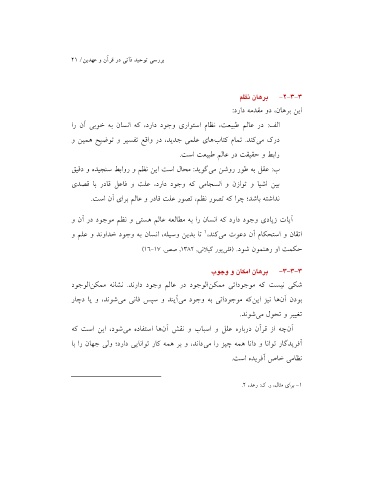 بررسی توحید ذاتی در قرآن و عهدین/ ۲۱
۳-۳-۲- برهان نظم
این برهان، دو مقدمه دارد:
الف: در عالم طبیعت، نظام استواری وجود دارد، که انسان به خوبی آن را
درک می‌کند. تمام کتاب‌های علمی جدید، در واقع تفسیر و توضیح و همین و
رابط و حقیقت در عالم طبیعت است.
ب: عقل به طور روشن می‌گوید: محال است این نظم و روابط سنجیده و دقیق
بین اشیا و توازن و انسجامی که وجود دارد، علت و فاعل قادر با قصدی
نداشته باشد؛ چرا که تصور نظم، تصور علت قادر و عالم برای آن است.
آیات زیادی وجود دارد که انسان را به مطالعه عالم هستی و نظم موجود در آن و
اتقان و استحکام آن دعوت می‌کند،۱ تا بدین وسیله، انسان به وجود خداوند و علم و
حکمت او رهنمون شود. (قلی‌پور گیلانی، ۱۳۸۲، صص ۱۷-۱۶)
۳-۳-۳- برهان امکان و وجوب
شکی نیست که موجوداتی ممکن‌الوجود در عالم وجود دارند. نشانه ممکن‌الوجود
بودن آن‌ها نیز این‌که موجوداتی به وجود می‌آیند و سپس فانی می‌شوند، و یا دچار
تغییر و تحول می‌شوند.
آن‌چه از قرآن درباره علل و اسباب و نقش آن‌ها استفاده می‌شود، این است که
آفریدگار توانا و دانا همه چیز را می‌داند، و بر همه کار توانایی دارد؛ ولی جهان را با
نظامی خاص آفریده است.
۱- برای مثال، ر. ک: رعد، ۲.